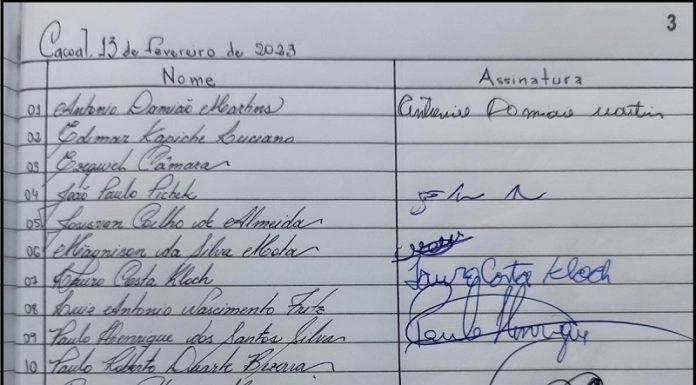 3
Cacoal, 13 de fevereiro de 2023
Nome Assinatura
01 Antonio Damião Martins Antonio Damião Martins
02 Edimar Kapiche Luciano
03 Ezequiel Câmara
04 João Paulo Pichek
05 Josevan Coelho de Almeida
06 Magnison da Silva Mota
07 Lauro Costa Kloch Lauro Costa Kloch
08 Luiz Antonio Nascimento Fritz
09 Paulo Henrique dos Santos Silva Paulo Henrique
10 Paulo Roberto Duarte Bezerra